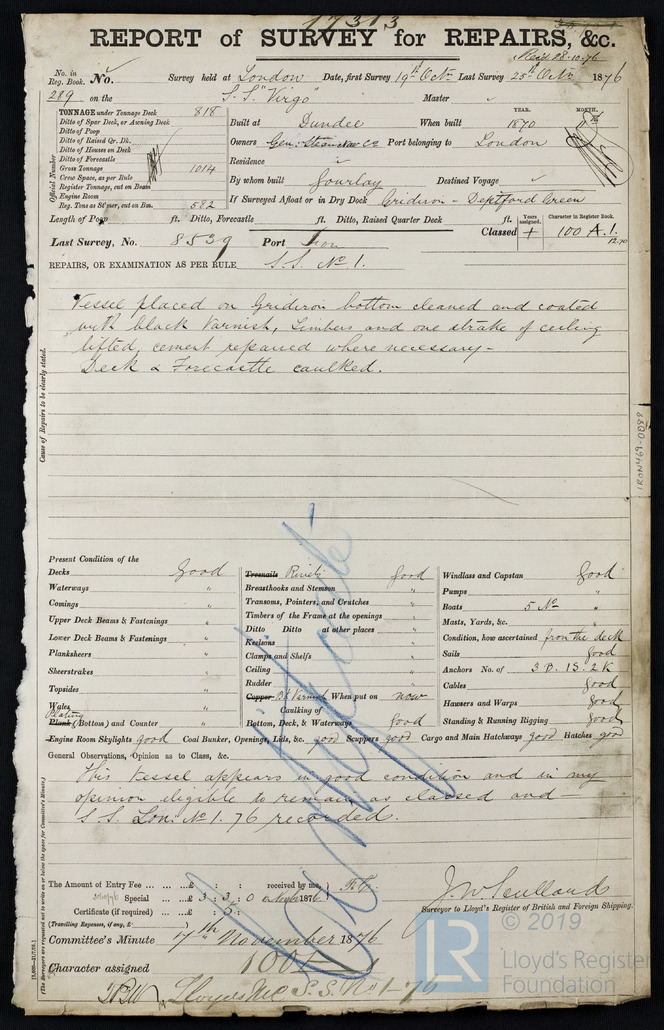 17313
REPORT of SURVEY for REPAIRS, &c.
Rec'd 28.10.76
No. in Reg. Book. No. Survey held at London Date, first Survey 19th Octr Last Survey 25th Octr 1876
289 on the S.S. "Virgo" Master
TONNAGE under Tonnage Deck 818
Ditto of Spar Deck, or Awning Deck
Ditto of Poop
Ditto of Raised Qr. Dk.
Ditto of Houses on Deck
Ditto of Forecastle
Gross Tonnage 1014
Crew Space, as per Rule
Register Tonnage, cut on Beam
Engine Room
Reg. Tons as St'mer, cut on Bm. 582
Official Number
YEAR. MONTH.
Built at Dundee When built 1870
Owners Gen: Steam Nav Co Port belonging to London
Residence
By whom built Gourlay Destined Voyage
If Surveyed Afloat or in Dry Dock Gridiron - Deptford Green
Length of Poop ft. Ditto, Forecastle ft. Ditto, Raised Quarter Deck ft.
Years assigned. Character in Register Book.
Last Survey, No. 8539 Port Lon Classed + 100 A.1.
12.70
REPAIRS, OR EXAMINATION AS PER RULE S.S. No 1.
Cause of Repairs to be clearly stated.
Vessel placed on Gridiron bottom cleaned and coated
with black Varnish, Limbers and one strake of ceiling
lifted, cement repaired where necessary -
Deck & Forecastle caulked.
IRON469-0288
Present Condition of the
Decks Good
Waterways "
Comings "
Upper Deck Beams & Fastenings "
Lower Deck Beams & Fastenings "
Planksheers "
Sheerstrakes "
Topsides "
Wales "
Plating
Plank (Bottom) and Counter "
Treenails Rivets good
Breasthooks and Stemson "
Transoms, Pointers, and Crutches "
Timbers of the Frame at the openings "
Ditto Ditto at other places "
Keelsons "
Clamps and Shelfs "
Ceiling "
Rudder "
Copper Bk Varnish When put on now
Caulking of
Bottom, Deck, & Waterways Good
Windlass and Capstan Good
Pumps "
Boats 5 No "
Masts, Yards, &c. "
Condition, how ascertained from the deck
Sails Good
Anchors No. of 3 B. 1 S. 2 K
Cables Good
Hawsers and Warps Good
Standing & Running Rigging Good
Engine Room Skylights good Coal Bunker, Openings, Lids, &c. good Scuppers good Cargo and Main Hatchways good Hatches good
General Observations, Opinion as to Class, &c.
This Vessel appears in good condition and in my
opinion eligible to remain as classed and -
S.S. Lon: No 1. 76 recorded.
Certificate
The Amount of Entry Fee ... ... £ : : received by me,
Special ... £ 3 : 3 . 0 1876
Certificate (if required) ... £ : 5 :
(Travelling Expenses, if any, £ )
Surveyor to Lloyd's Register of British and Foreign Shipping.
Committee's Minute 7th November 1876
Character assigned 100 A 1
Lloyds MC S.S. No 1-76
(The Surveyors are requested not to write on or below the space for Committee's Minute.)
© 2019
LR
Lloyd's Register
Foundation